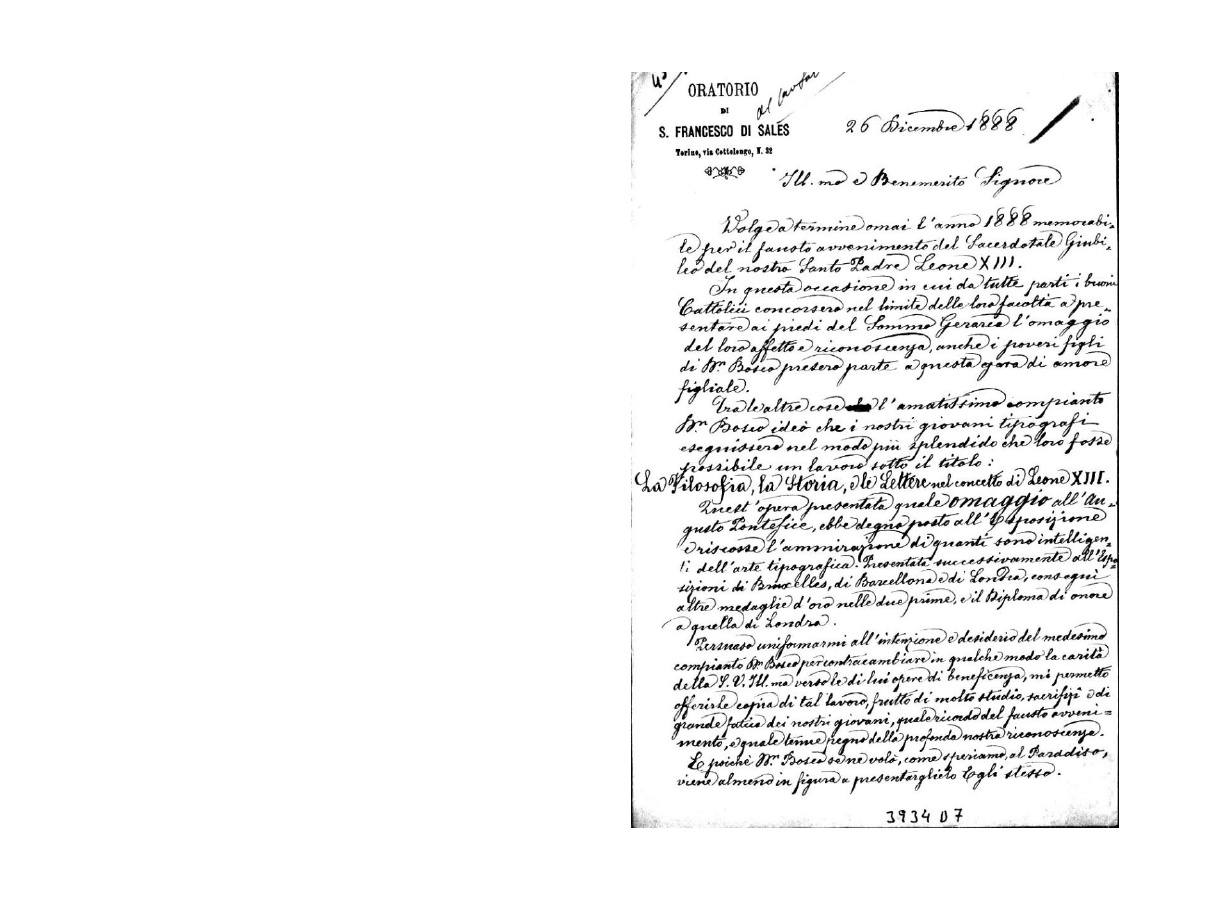 ORATORIO
DI
S. FRANCESCO DI SALES
Torino, via Cottolengo, N. 32
26 Dicembre 1888
Ill.mo e Benemerito Signore
Volge a termine omai l'anno 1888 memorabi-
le per il fausto avvenimento del Sacerdotale Giubi-
leo del nostro Santo Padre Leone XIII.
In questa occasione in cui da tutte parti i buoni
Cattolici concorsero nel limite delle loro facoltà a pre-
sentare ai piedi del Sommo Gerarca l'omaggio
del loro affetto e riconoscenza, anche i poveri figli
di Dn Bosco presero parte a questa gara di amore
figliale.
Tra le altre cose l'amatissimo compianto
Dn Bosco ideò che i nostri giovani tipografi
eseguissero nel modo più splendido che loro fosse
possibile un lavoro sotto il titolo:
La Filosofia, la Storia, e le Lettere nel concetto di Leone XIII.
Quest'opera presentata quale omaggio all'Au-
gusto Pontefice, ebbe degno posto all'Esposizione
e riscosse l'ammirazione di quanti sono intelligen-
ti dell'arte tipografica. Presentata successivamente all'Espo
sizioni di Bruxelles, di Barcellona e di Londra, conseguì
altre medaglie d'oro nelle due prime, e il Diploma di onore
a quella di Londra.
Persuaso uniformarmi all'intenzione e desiderio del medesimo
compianto Dn Bosco per contraccambiare in qualche modo la carità
della S. V. Ill.ma verso le di lui opere di beneficenza, mi permetto
offerirle copia di tal lavoro, frutto di molto studio, sacrifizi e di
grande fatica dei nostri giovani, quale ricordo del fausto avveni=
mento, e quale tenue pegno della profonda nostra riconoscenza.
E poichè Dn Bosco se ne volò, come speriamo, al Paradiso,
viene almeno in figura a presentarglielo Egli stesso.
3934 D7